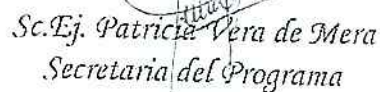 Sc.Ej. Patricia Vera de Mera
Secretaria del Programa